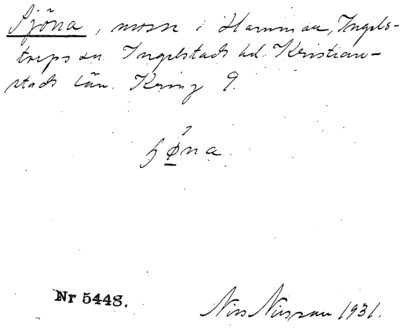 Sjöna, mosse i Hammar, Ingels-
torps sn. Ingelstads hd. Kristian-
stads län. Kring 9.
Nr 5448.
Nils Nilsson 1931.